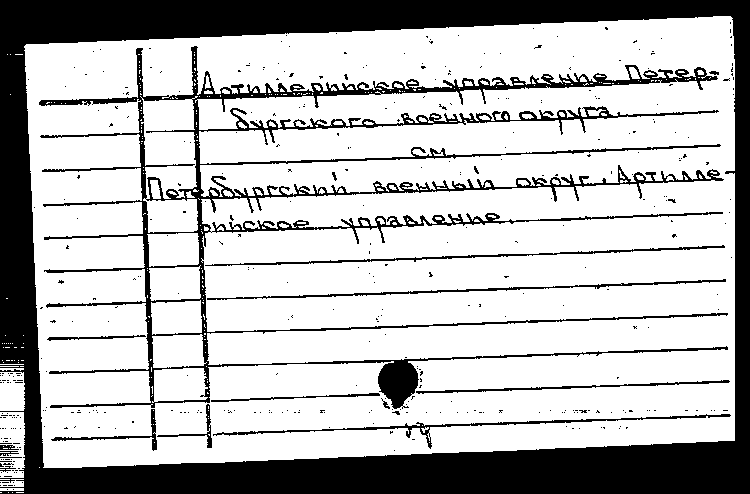 Артиллерийское управление Петер-
бургского военного округа.
см.
Петербургский военный округ. Артилле-
рийское управление.